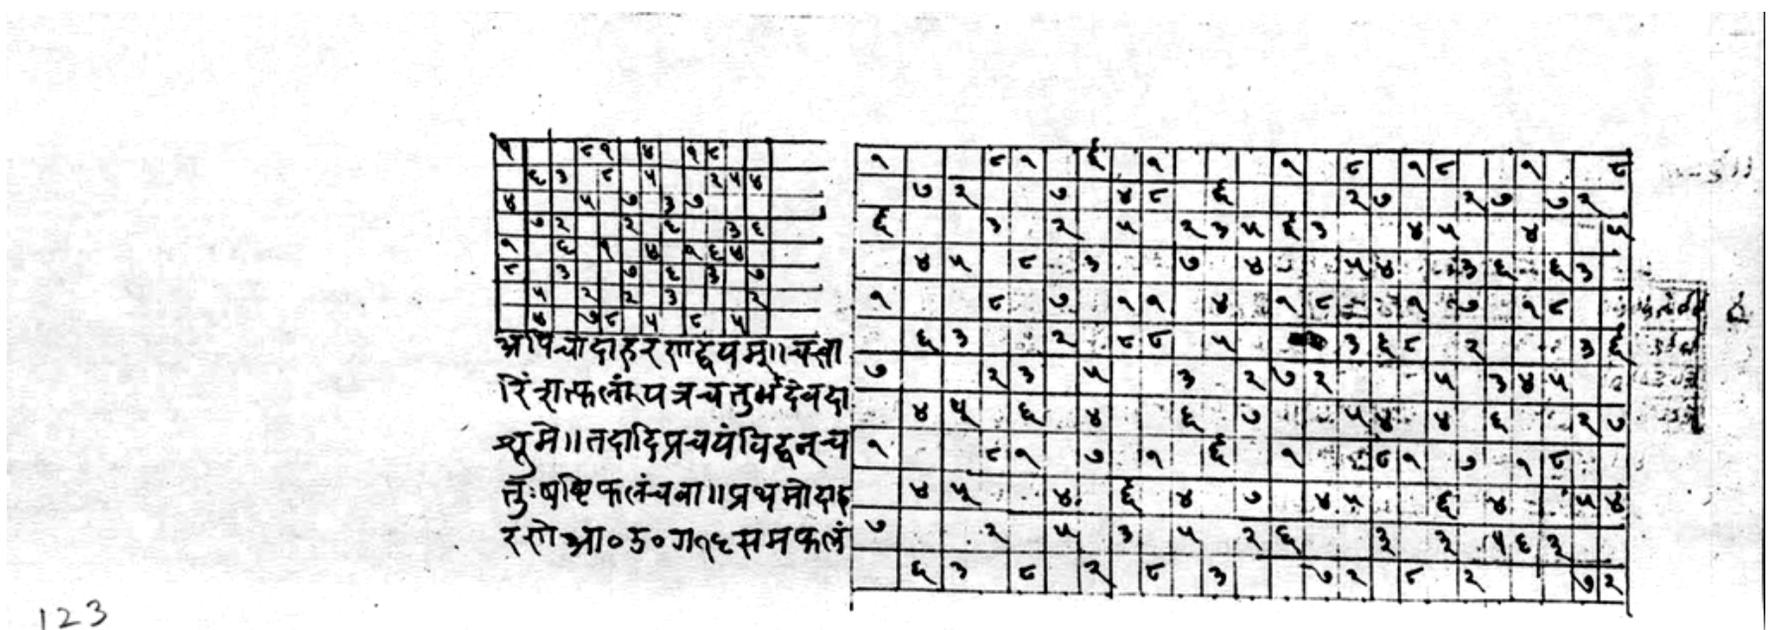 १ ८ १ ४ १ ८
६ ३ ८ ५ २ ५ ४
४ ५ ७ ३ ७
७ २ २ ६ ३ ६
१ ६ १ ४ १ ६ ४
८ ३ ७ ६ ३ ७
५ २ २ ३ २
४ ७ ८ ५ ८ ५
अपिचोदाहरणद्वयम्॥चत्वा
रिंशत्फलं पत्रचतुर्भदेवदा
शुमे॥तदादिप्रचयं विद्वन्च
तुःषष्टिफलंचवा॥प्रथमोदाह
रणे आ०उ०ग१६समफलं
१ ८ १ ६ १ १ ८ १ ८ १ ८
७ २ ७ ४ ८ ६ २ ७ २ ७ ७ २
६ ३ २ ५ २ ३ ५ ६ ३ ४ ५ ४ ५
४ ५ ८ ३ ७ ४ ५ ४ ३ ६ ६ ३
१ ८ ७ १ १ ४ १ ८ १ ७ १ ८
६ ३ २ ८ ८ ५ ३ ६ ८ २ ३ ६
७ २ ३ ५ ३ २ ७ २ ५ ३ ४ ५
४ ५ ६ ४ ६ ७ ५ ४ ४ ६ २ ७
१ ८ १ ७ १ ६ १ ८ १ ७ १ ८
४ ५ ४ ६ ४ ७ ४ ५ ६ ४ ५ ४
७ २ ५ ३ ५ २ ६ ३ ३ ५ ६ ३
६ ३ ८ २ ८ ३ ७ २ ८ २ ७ २
123